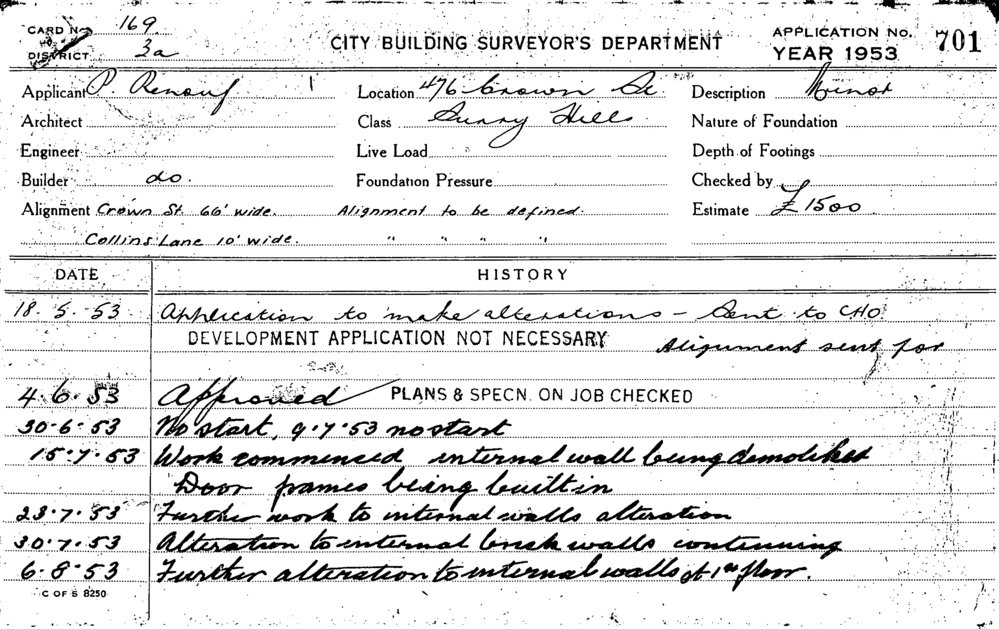 CARD No. 169
DISTRICT 3a
CITY BUILDING SURVEYOR'S DEPARTMENT
APPLICATION No. 701
YEAR 1953
Applicant P. Renouf Location 476 Crown St. Description Minor
Architect Class Surry Hills Nature of Foundation
Engineer Live Load Depth of Footings
Builder do. Foundation Pressure Checked by
Alignment Crown St. 66' wide. Alignment to be defined. Estimate £1500
Collins Lane 10' wide. " " " "
DATE HISTORY
18.5.53 Application to make alterations - Sent to CHO
DEVELOPMENT APPLICATION NOT NECESSARY Alignment sent for
4.6.53 Approved PLANS & SPECN. ON JOB CHECKED
30.6.53 No start, 9.7.53 no start
15.7.53 Work commenced internal wall being demolished
Door frames being built in
23.7.53 Further work to internal walls alteration
30.7.53 Alteration to internal brick walls continuing
6.8.53 Further alteration to internal walls of 1st floor.
C OF S 8250